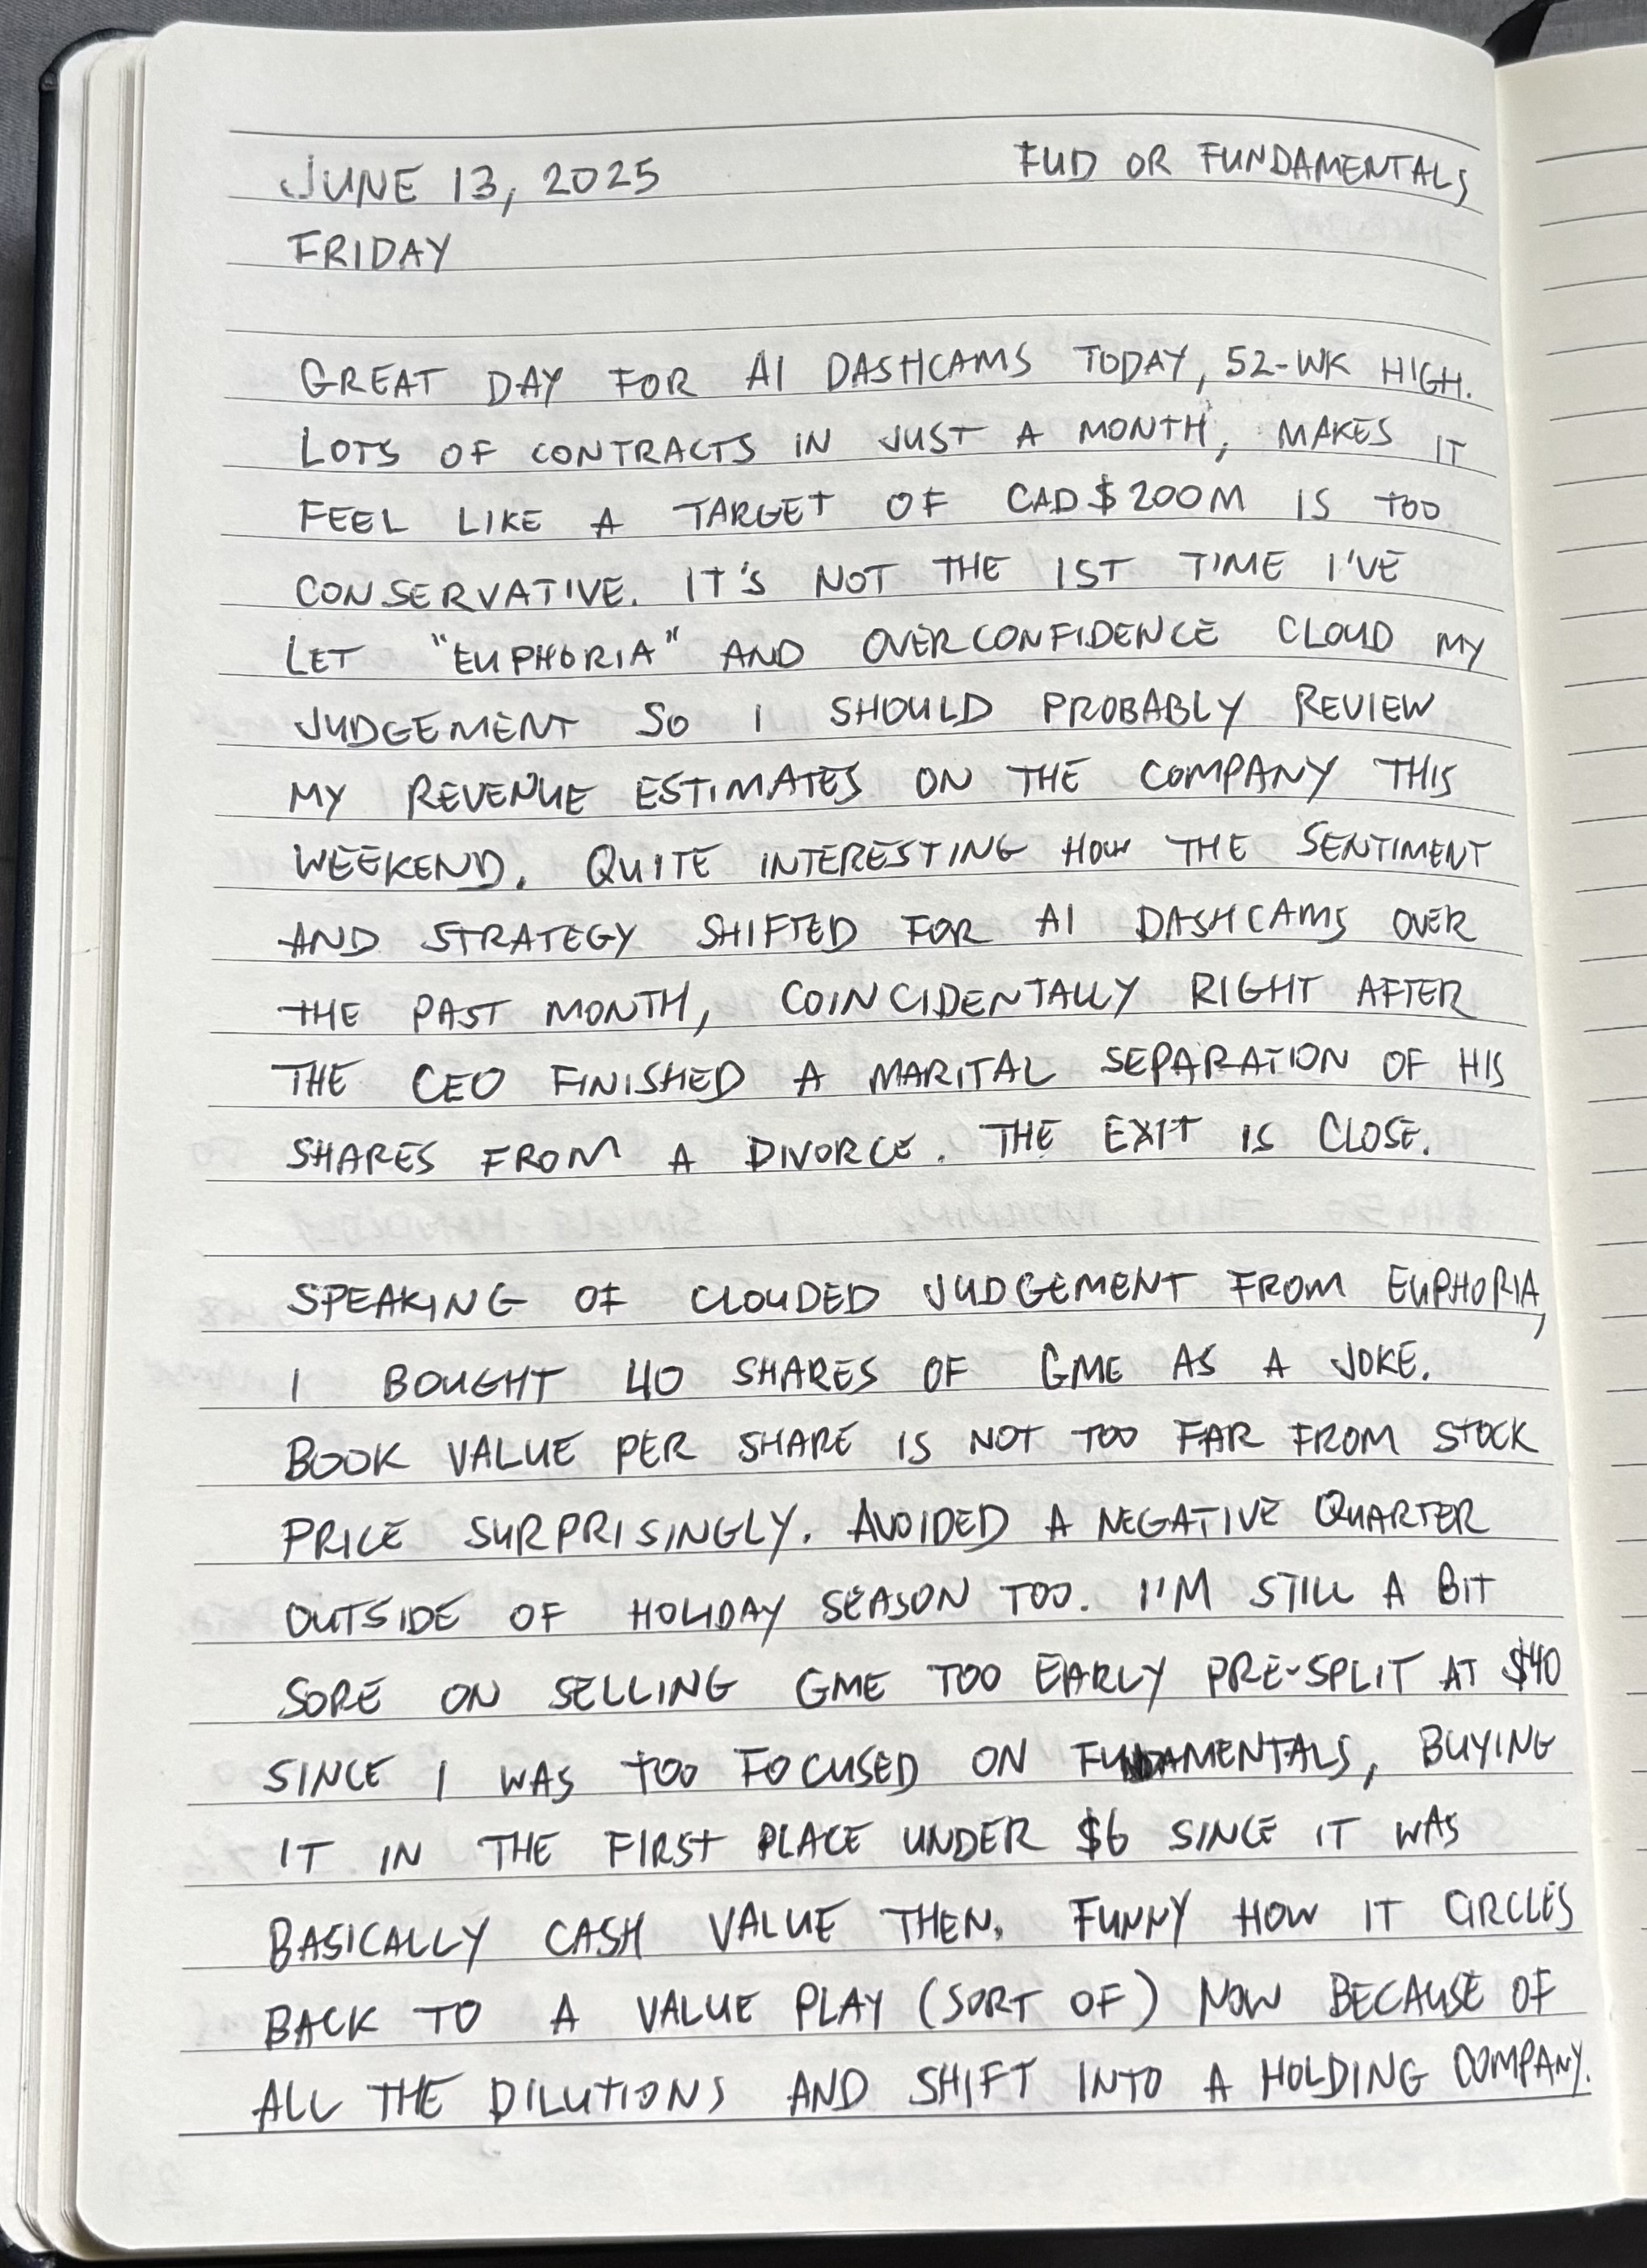 JUNE 13, 2025 FUD OR FUNDAMENTALS
FRIDAY
GREAT DAY FOR AI DASHCAMS TODAY, 52-WK HIGH.
LOTS OF CONTRACTS IN JUST A MONTH, MAKES IT
FEEL LIKE A TARGET OF CAD$200M IS TOO
CONSERVATIVE. IT'S NOT THE 1ST TIME I'VE
LET "EUPHORIA" AND OVERCONFIDENCE CLOUD MY
JUDGEMENT SO I SHOULD PROBABLY REVIEW
MY REVENUE ESTIMATES ON THE COMPANY THIS
WEEKEND. QUITE INTERESTING HOW THE SENTIMENT
AND STRATEGY SHIFTED FOR AI DASHCAMS OVER
THE PAST MONTH, COINCIDENTALLY RIGHT AFTER
THE CEO FINISHED A MARITAL SEPARATION OF HIS
SHARES FROM A DIVORCE. THE EXIT IS CLOSE.
SPEAKING OF CLOUDED JUDGEMENT FROM EUPHORIA,
I BOUGHT 40 SHARES OF GME AS A JOKE.
BOOK VALUE PER SHARE IS NOT TOO FAR FROM STOCK
PRICE SURPRISINGLY. AVOIDED A NEGATIVE QUARTER
OUTSIDE OF HOLIDAY SEASON TOO. I'M STILL A BIT
SORE ON SELLING GME TOO EARLY PRE-SPLIT AT $40
SINCE I WAS TOO FOCUSED ON FUNDAMENTALS, BUYING
IT IN THE FIRST PLACE UNDER $6 SINCE IT WAS
BASICALLY CASH VALUE THEN. FUNNY HOW IT CIRCLES
BACK TO A VALUE PLAY (SORT OF) NOW BECAUSE OF
ALL THE DILUTIONS AND SHIFT INTO A HOLDING COMPANY.